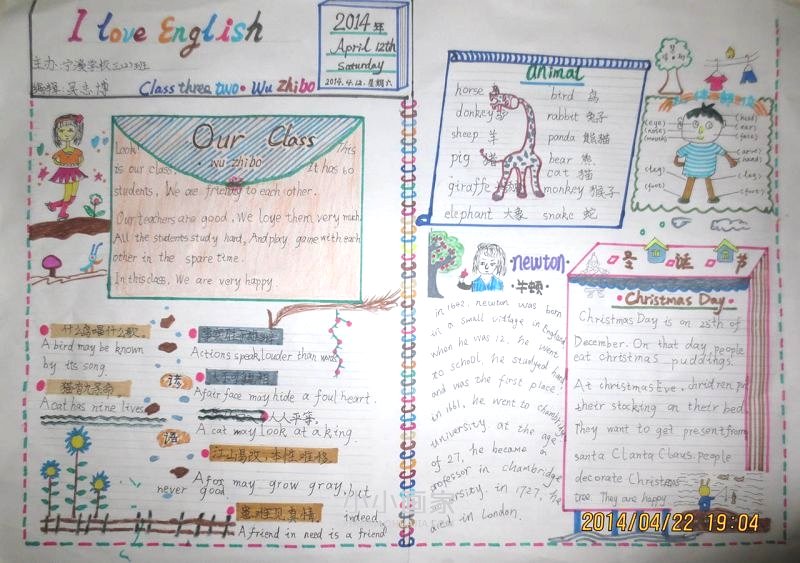 I love English
主办:宁溪学校三(2)班
编辑:吴志博
Class three two • Wu zhibo
2014年
April 12th
Saturday
2014.4.12.星期六
Our Class
• wu zhibo •
Look! This
is our class. It has 60
students. We are friendly to each other.
Our teachers are good. We love them very much.
All the students study hard. And play game with each
other in the spare time.
In this class. We are very happy.
什么鸟唱什么歌。
A bird may be known
by its song.
猫有九条命。
A cat has nine lives.
谚
语
Actions speak louder than words.
A fair face may hide a foul heart.
人人平等。
A cat may look at a king.
江山易改,本性难移
A fox may grow gray, but
never good.
患难见真情。
A friend in need is a friend
indeed
animal
horse 马
donkey 驴
sheep 羊
pig 猪
giraffe
elephant 大象
bird 鸟
rabbit 兔子
panda 熊猫
bear 熊
cat 猫
monkey 猴子
snake 蛇
(eye)
(nose)
(mouth)
(leg)
(foot)
(head)
(ear)
(face)
(arm)
(hand)
(leg)
(foot)
newton
牛顿
in 1642, newton was born
in a small village in England
when he was 12, he went
to school, he studied hard
and was the first place!
in 1661, he went to chambridge
university. at the age
of 27, he became a
professor in chambridge
university. in 1727, he
died in London.
圣诞节
• Christmas Day •
Christmas Day is on 25th of
December. On that day people
eat christmas puddings.
At christmas Eve, chridren put
their stocking on their bed
They want to get present from
santa Clanta Claus. people
decorate Christmas
tree. They are happy
小小画家
2014/04/22 19:04